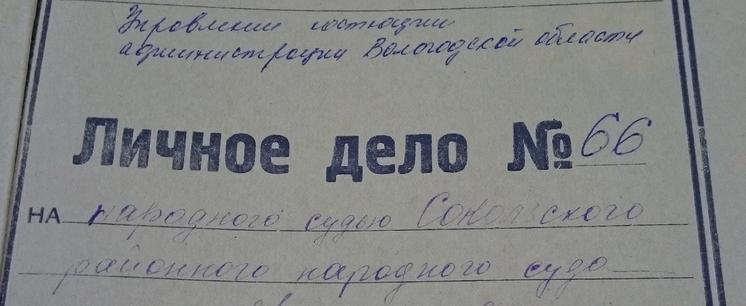 Управлении юстиции
администрации Вологодской области
Личное дело № 66
на народного судью Сокольского
районного народного суда